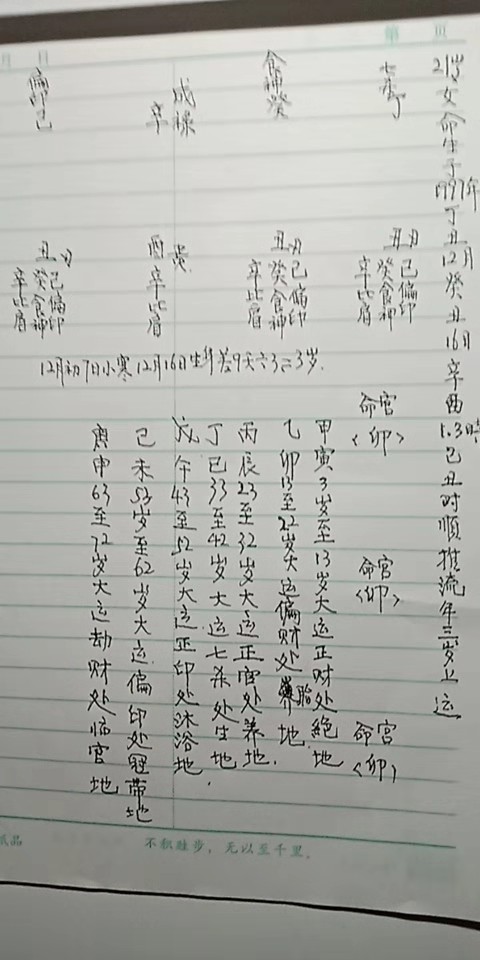 月 日
第 页
21岁女命生于1997年丁丑12月癸丑16日辛酉1.3時己丑时顺推流年三岁上运
七杀丁
食神癸
成禄
辛
偏印己
丑
己偏印
癸食神
辛比肩
丑
己偏印
癸食神
辛比肩
酉
辛比肩
丑
己偏印
癸食神
辛比肩
12月初7日小寒12月16日生
命宫
<卯>
命宫
<卯>
命宫
<卯>
甲寅3岁至13岁大运正财处絶地
乙卯13至22岁大运偏财处胎地
丙辰23至32岁大运正官处养地.
丁巳33至42岁大运七杀处生地.
戊午43至52岁大运正印处沐浴地
己未53岁至62岁大运偏印处冠带地
庚申63至72岁大运劫财处临官地
纸品
不积跬步，无以至千里。